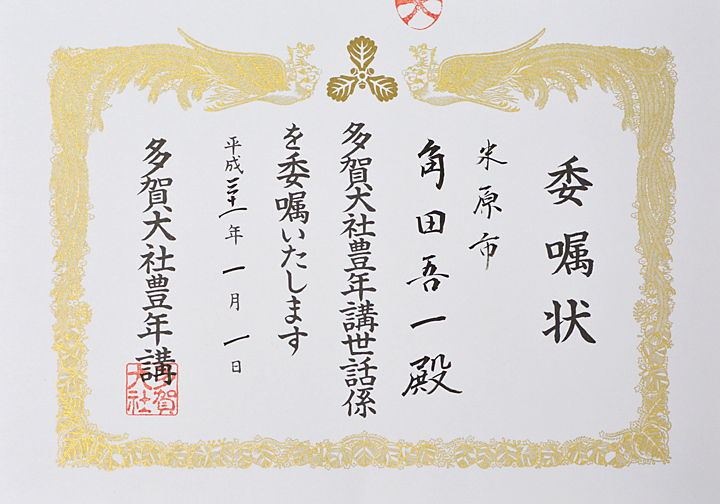 委嘱状
米原市
角田吾一殿
多賀大社豊年講世話係
を委嘱いたします
平成三十一年一月一日
多賀大社豊年講
多賀
大社